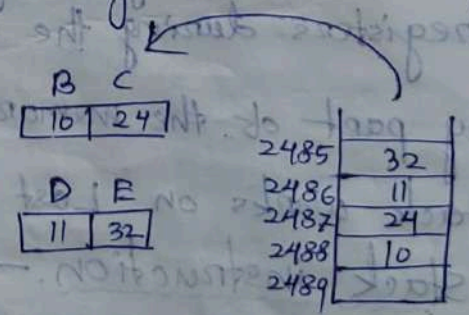 B C
10 24
D E
11 32
2485 32
2486 11
2487 24
2488 10
2489